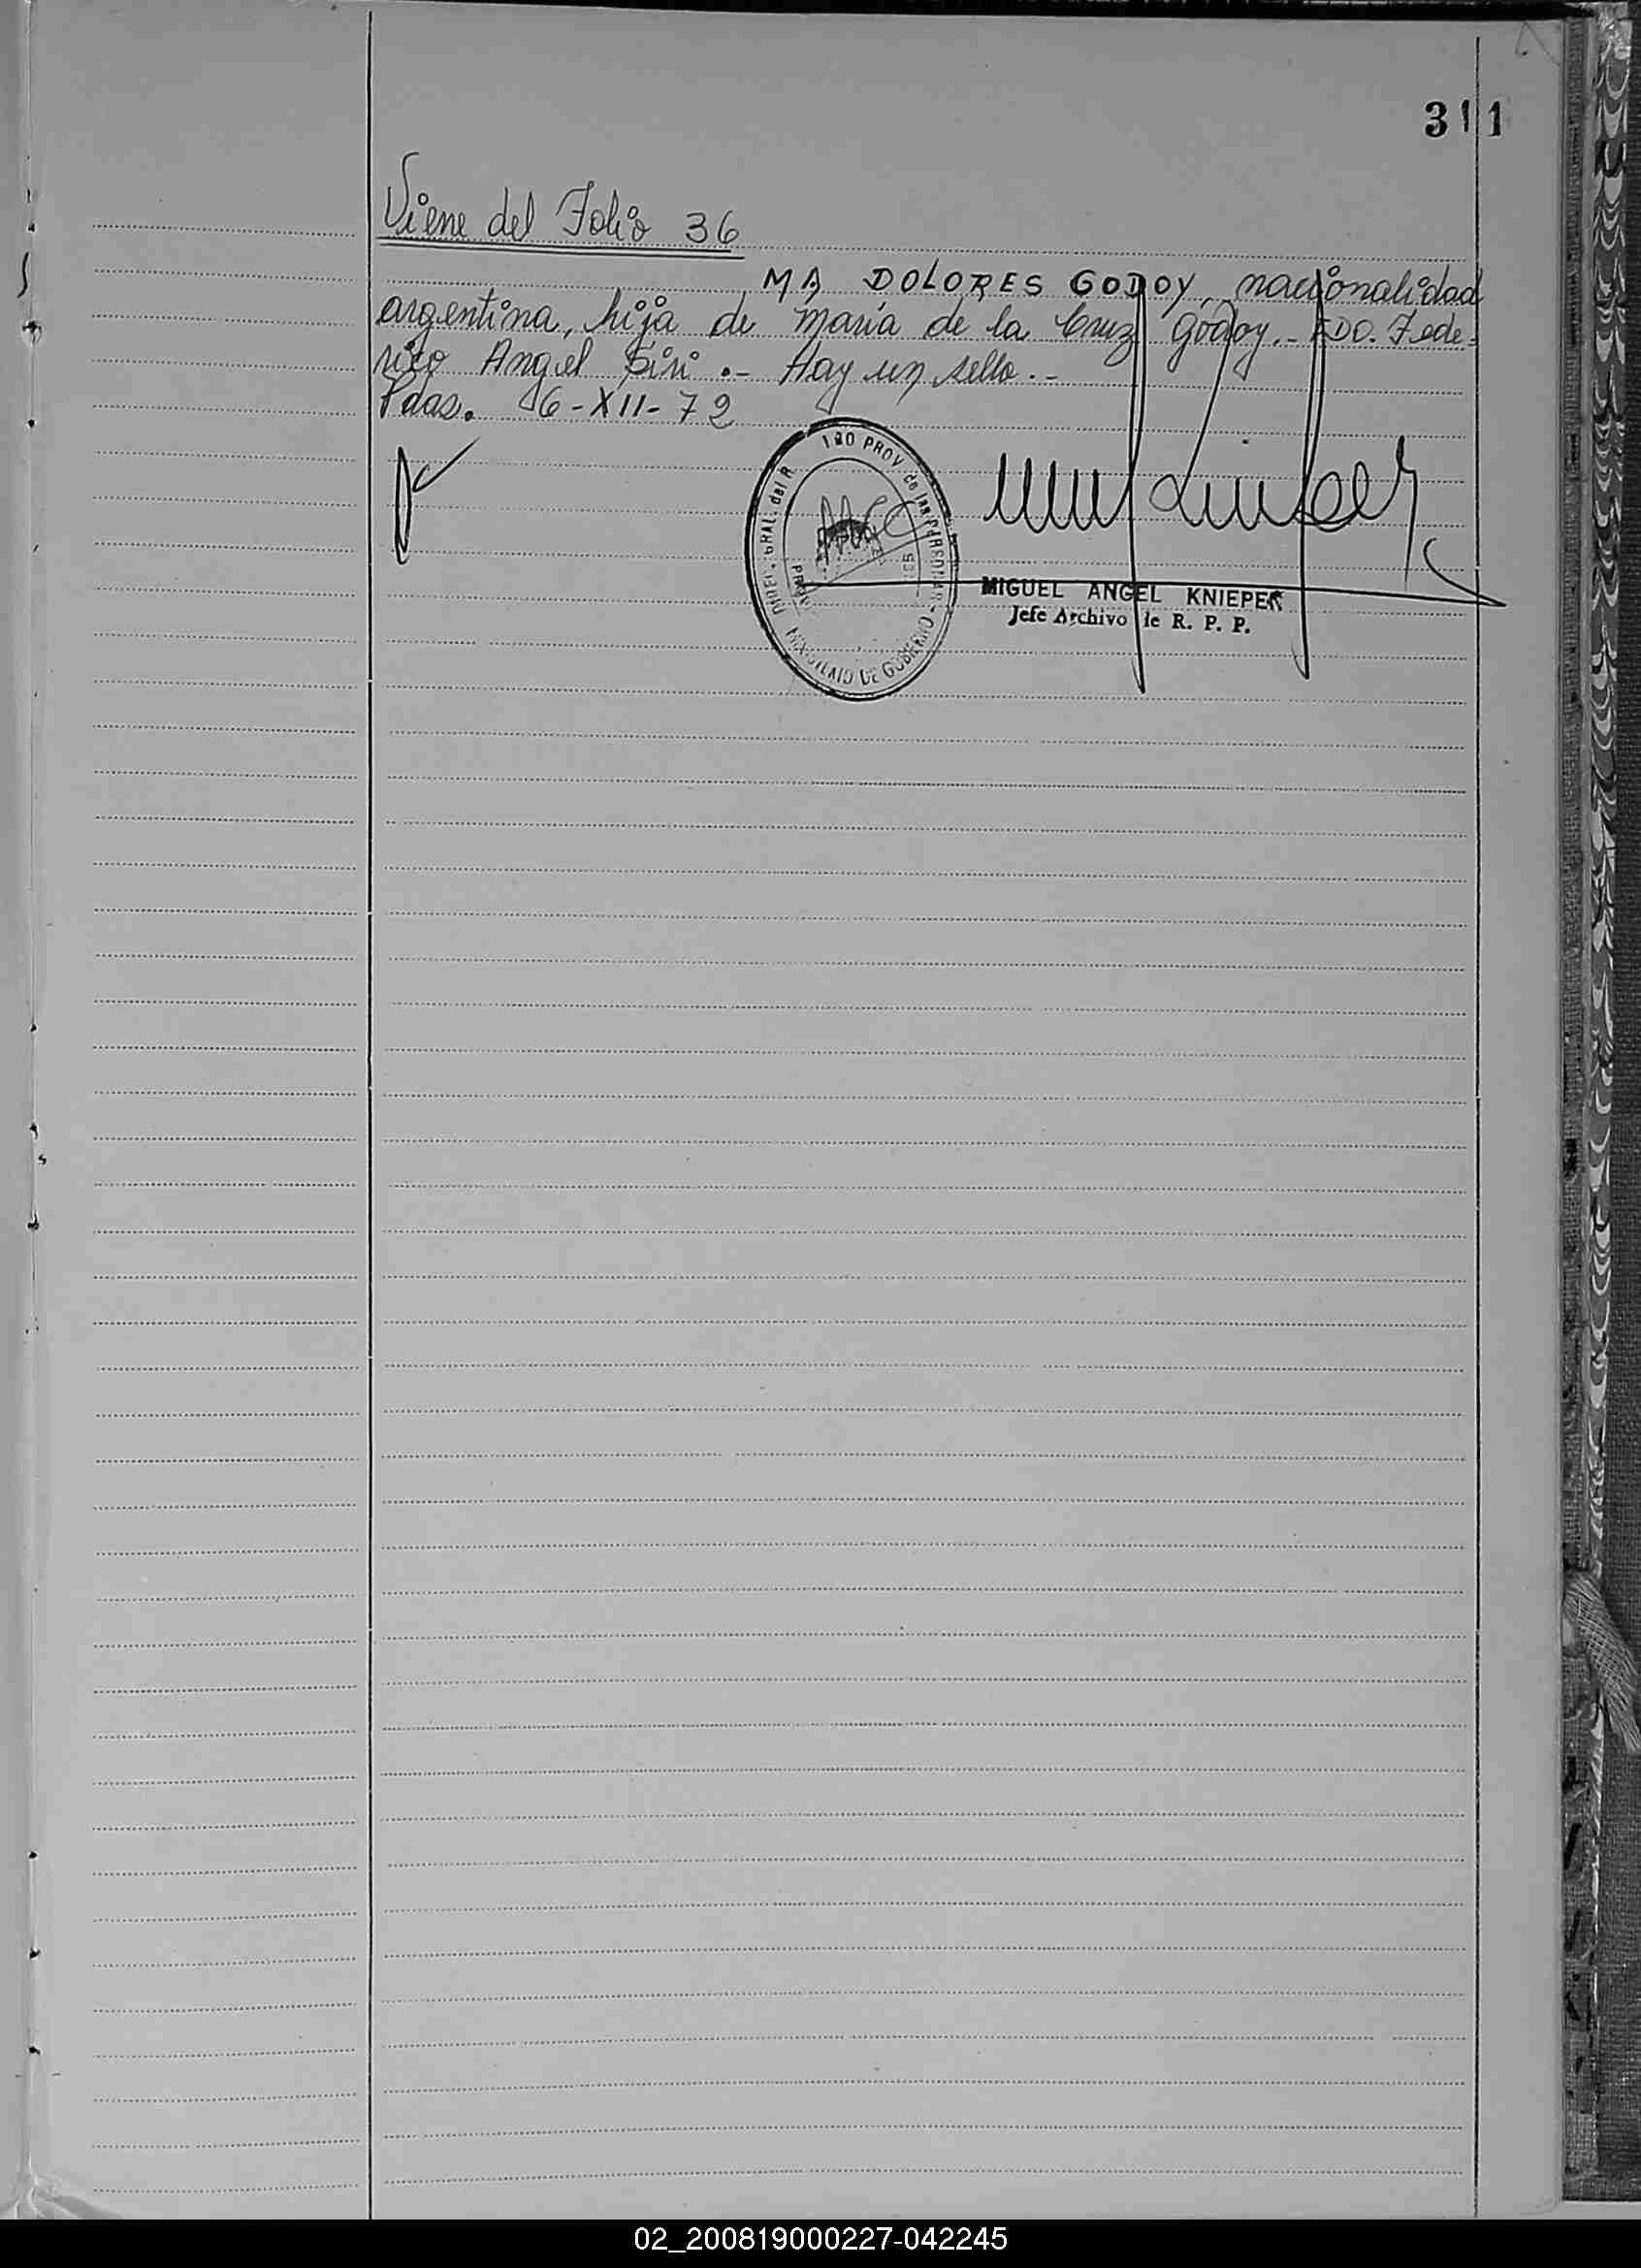 311
Viene del Folio 36
MA DOLORES GODOY, nacionalidad
argentina, hija de María de la Cruz Godoy.- FDO. Fede-
rico Angel Siri .- Hay un sello.-
Pdas. 6-XII-72
DIREC. GRAL. del R PROV. de las PERSONAS
MINISTERIO DE GOBIERNO
MIGUEL ANGEL KNIEPER
Jefe Archivo de R. P. P.
02_200819000227-042245